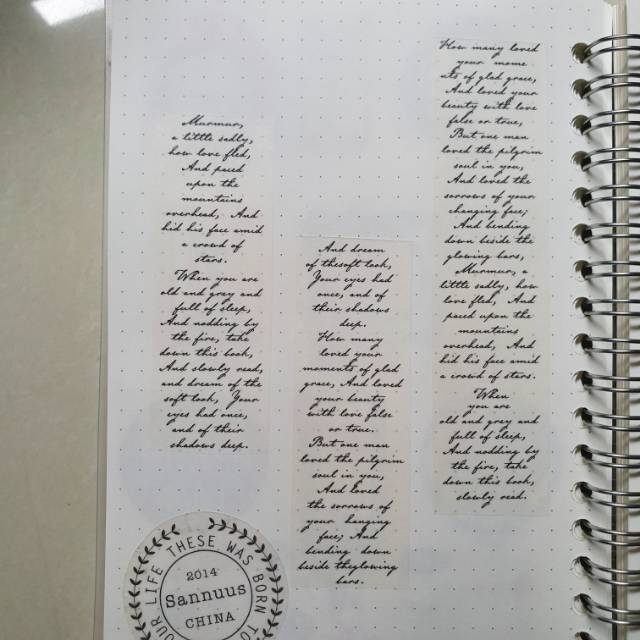 Murmur,
a little sadly,
how love fled,
And paced
upon the
mountains
overhead, And
hid his face amid
a crowd of
stars.
When you are
old and grey and
full of sleep,
And nodding by
the fire, take
down this book,
And slowly read,
and dream of the
soft look, Your
eyes had once,
and of their
shadows deep.
And dream
of thesoft look,
Your eyes had
once, and of
their shadows
deep.
How many
loved your
moments of glad
grace, And loved
your beauty
with love false
or true.
But one man
loved the pilgrim
soul in you,
And loved
the sorrows of
your hanging
face; And
bending down
beside theglowing
bars.
How many loved
your mome
nts of glad grace,
And loved your
beauty with love
false or true,
But one man
loved the pilgrim
soul in you,
And loved the
sorrows of your
changing face;
And bending
down beside the
glowing bars,
Murmur, a
little sadly, how
love fled, And
paced upon the
mountains
overhead, And
hid his face amid
a crowd of stars.
When
you are
old and grey and
full of sleep,
And nodding by
the fire, take
down this book,
slowly read.
OUR LIFE THESE WAS BORN TO
2014
Sannuus
CHINA